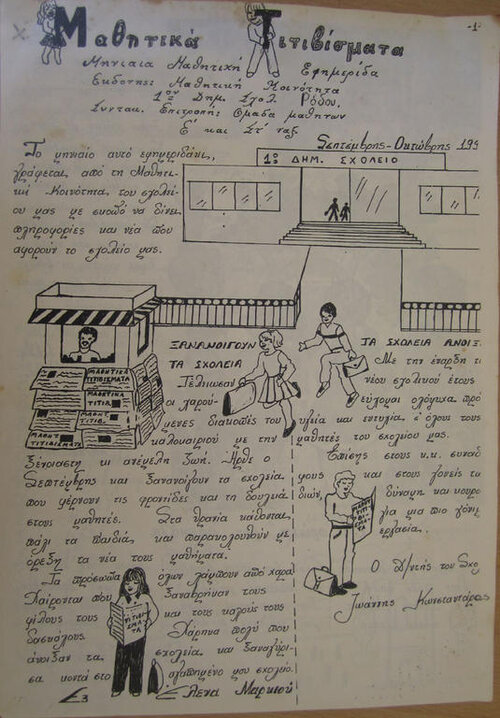 -1-
Μαθητικά Τιτιβίσματα
Μηνιαία Μαθητική Εφημερίδα
Εκδότης: Μαθητική Κοινότητα
1ου Δημ. Σχολ. Ρόδου.
Συντακ. Επιτροπή: Ομάδα μαθητών
Ε' και Στ' ταξ.
Σεπτέμβρης-Οκτώβρης 199
Το μηνιαίο αυτό εφημεριδάκι,
γράφεται από τη Μαθητι-
κή Κοινότητα, του σχολεί-
ου μας με σκοπό να δίνει
πληροφορίες και νέα που
αφορούν το σχολείο μας.
1ο ΔΗΜ. ΣΧΟΛΕΙΟ
ΜΑΘΗΤΙΚΑ
ΤΙΤΙΒΙΣΜΑΤΑ
ΜΑΘΗΤΙΚΑ
ΤΙΤΙΒ.
ΜΑΘΗΤ
ΤΙΤΙΒΙΣΜΑΤΑ
ΞΑΝΑΝΟΙΓΟΥΝ
ΤΑ ΣΧΟΛΕΙΑ
Τέλειωσαν
οι χαρού-
μενες διακοπές του
καλοκαιριού με την
ξένοιαστη κι ανέμελη ζωή. Ήρθε ο
Σεπτέμβρης κι ξανανοίγουν τα σχολεία
που φέρνουν τις φροντίδες και τη δουλειά
στους μαθητές. Στα θρανία κάθονται
πάλι τα παιδιά, και παρακολουθούν με
όρεξη τα νέα τους μαθήματα.
Τα πρόσωπα όλων λάμπουν από χαρά
Χαίρονται που ξαναβρήκαν τους
φίλους τους και τους καλούς τους
δασκάλους. Χάρηκα πολύ που
άνοιξαν τα σχολεία και ξαναγύρι-
σα κοντά στο αγαπημένο μου σχολείο.
Λένα Μαρκιού
ΤΙΤΙΒΙ
ΣΜΑΤΑ
ΤΑ ΣΧΟΛΕΙΑ ΑΝΟΙΞ
Με την έναρξη τ
νέου σχολικού έτους
εύχομαι ολόψυχα πρό
υγεία και ευτυχία σ' όλους τους
μαθητές του σχολείου μας.
Επίσης στους κ.κ. συναδ
φους και στους γονείς τω
διών, δύναμη και κουρά
για μια πιο γόνιμ
εργασία.
ΜΑΘΗ
ΤΙΤΙ
ΒΙ
ΣΜΑ
ΤΑ
Ο Δ/ντής του Σχο
Ιωάννης Κωνσταντάρας